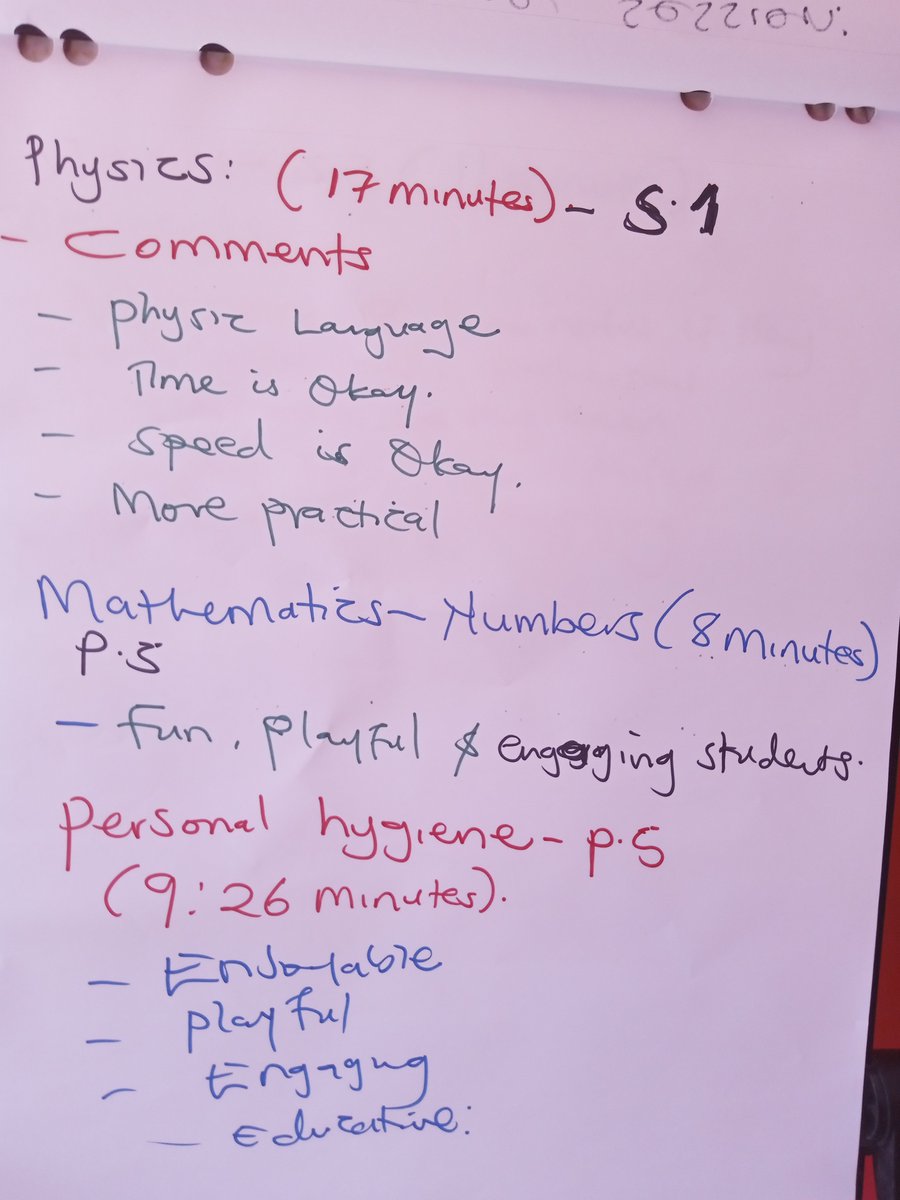 Physics: (17 minutes) - S.1
- Comments
- Physic Language
- Time is Okay.
- Speed is Okay.
- More practical
Mathematics - Numbers (8 minutes)
P.3
- Fun, playful & engaging students.
Personal hygiene - P.5
(9:26 minutes).
- Enjoyable
- playful
- Engaging
- Educative.